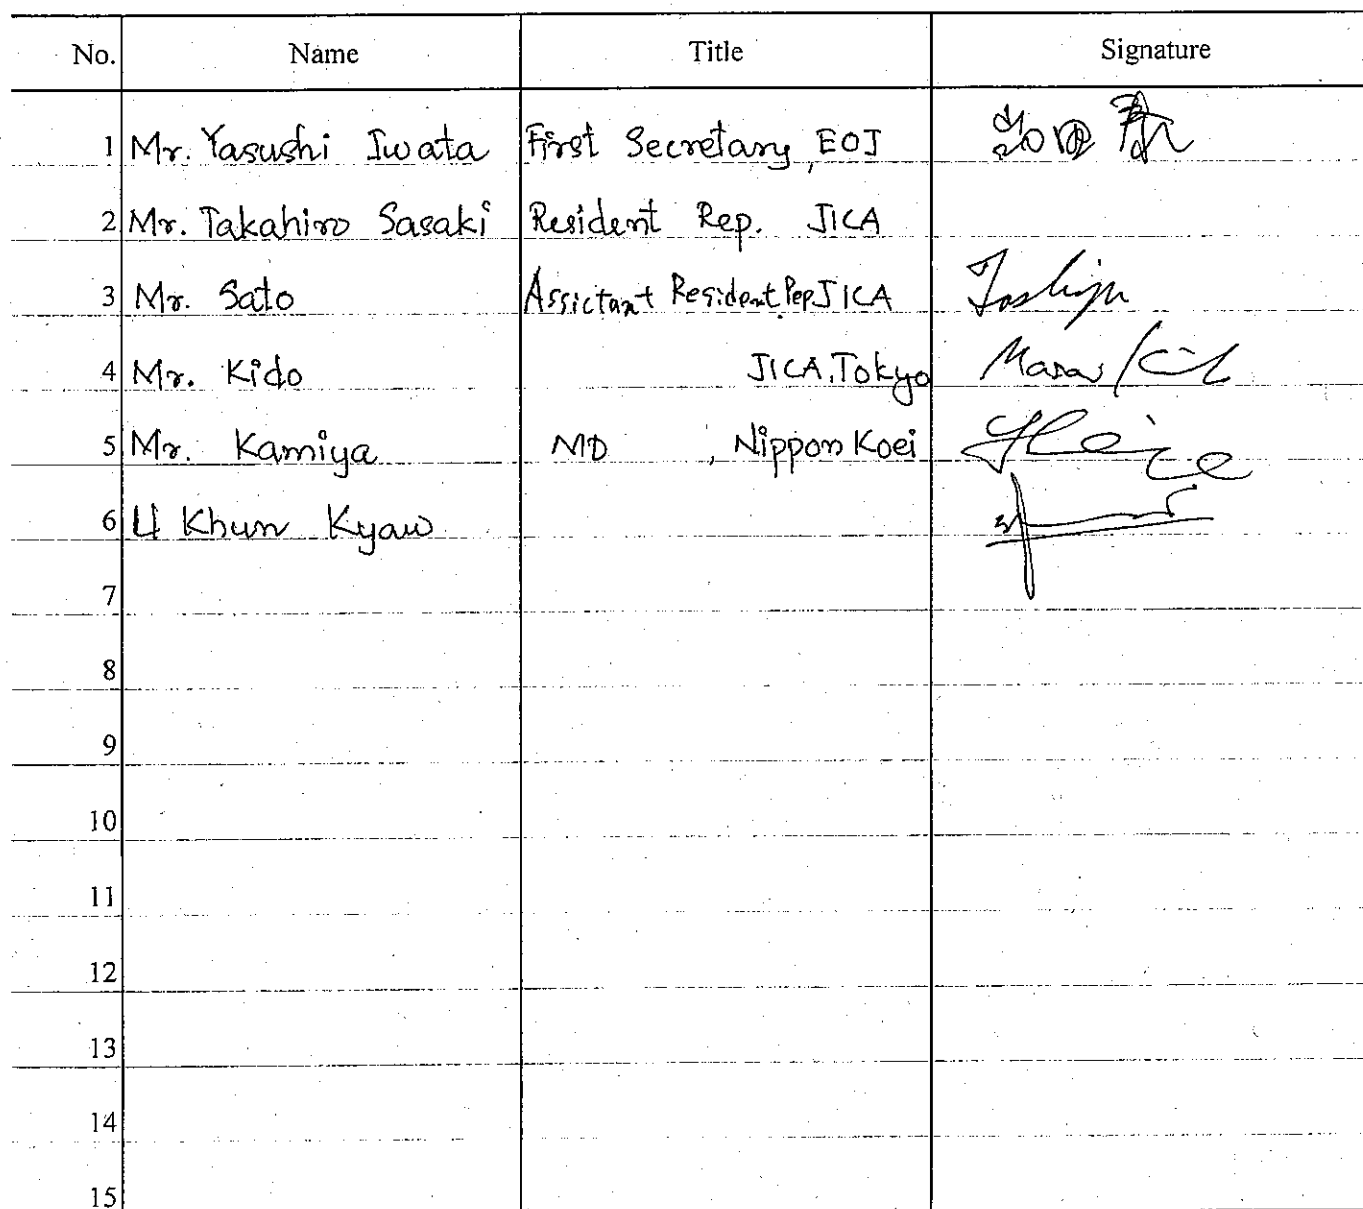 No. Name Title Signature
1 Mr. Yasushi Iwata First Secretary, EOJ
2 Mr. Takahiro Sasaki Resident Rep. JICA
3 Mr. Sato Assictant Resident Rep JICA
4 Mr. Kido JICA, Tokyo
5 Mr. Kamiya MD , Nippon Koei
6 U Khun Kyaw
7
8
9
10
11
12
13
14
15